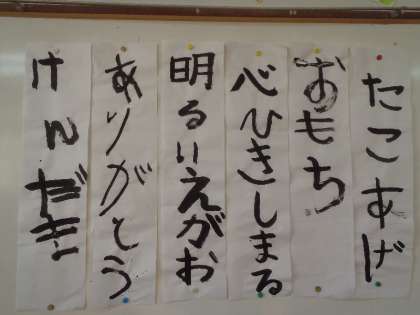 たこあげ
おもち
心ひきしまる
明るいえがお
ありがとう
けんだま